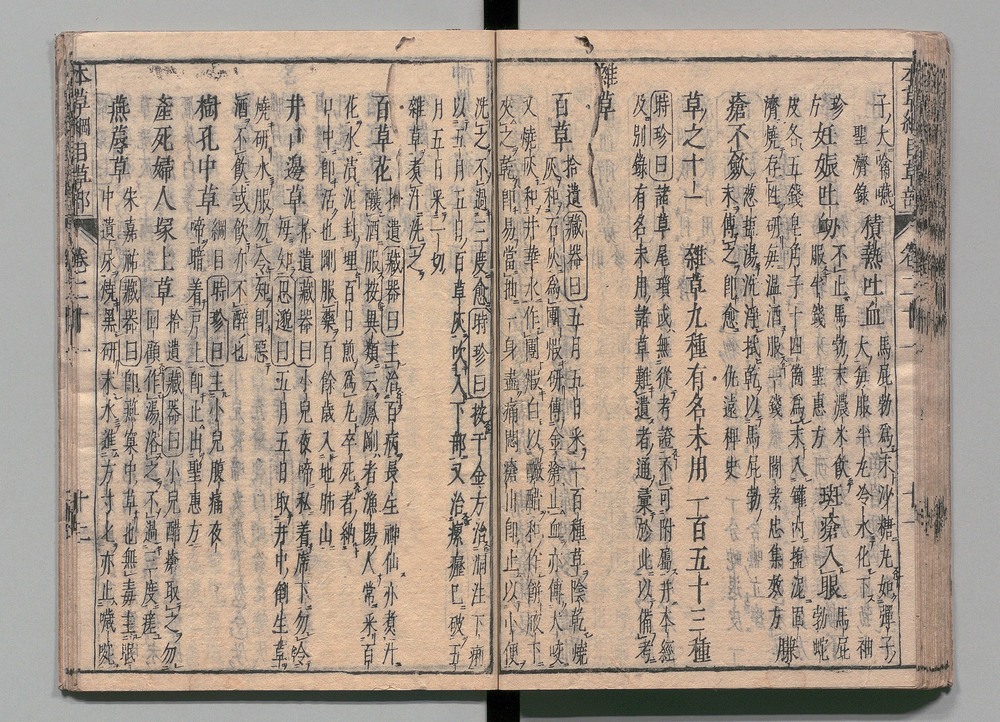 子大噙嚥
聖濟錄
積熱吐血 馬屁勃爲末沙糖丸如彈子
大每服半丸冷水化下 袖
珍
妊娠吐衄 不止馬勃末濃米飲
服半錢 聖惠方
斑瘡入眼 馬屁
勃蛇
皮各五錢皂角子十四箇爲末入罐內鹽泥固
濟燒存性研每溫酒服一錢 聞人規 集效方
臁
瘡不斂 葱鹽湯洗淨拭乾以馬屁勃
末傅之即愈 仇遠稗史
草之十一 雜草九種 有名未用一百五十三種
時珍曰諸草尾瑣或無從考證不可附屬并本經
及別錄有名未用諸草難遺者通彙於此以備考
雜草
百草 拾遺藏器曰五月五日采一百種草陰乾燒
灰和石灰爲團研傅金瘡止血亦傅犬咬
又燒灰和井華水作團煅白以釅醋和作餅腋下
夾之乾即易當抽一身盡痛悶瘡出即止以小便
洗之不過三度愈時珍曰按千金方治洞注下痢
以五月五日百草灰吹入下部又治瘰癧已破五
月五日采一切
雜草煮汁洗之
百草花 拾遺藏器曰主治百病長生神仙亦煮汁
釀酒服按異類云鳳剛者漁陽人常采百
花水漬泥封埋百日煎爲丸卒死者納
口中即活也剛服藥百餘歲入地肺山
井口邊草 拾遺藏器曰小兒夜啼私着席下勿令
母知思邈曰五月五日取井中倒生草
燒研水服勿令知即惡
酒不飲或飲亦不醉也
樹孔中草 綱目時珍曰主小兒腹痛夜
啼暗着戶上即止出聖惠方
產死婦人塚上草 拾遺藏器曰小兒醋瘡取之勿
回顧作湯浴之不過三度瘥
燕蓐草 朱嘉祐藏器曰即燕窠中草也無毒主眠
中遺尿燒黑研末水進方寸匕亦止噦啘
本草綱目草部 卷二十一 十二